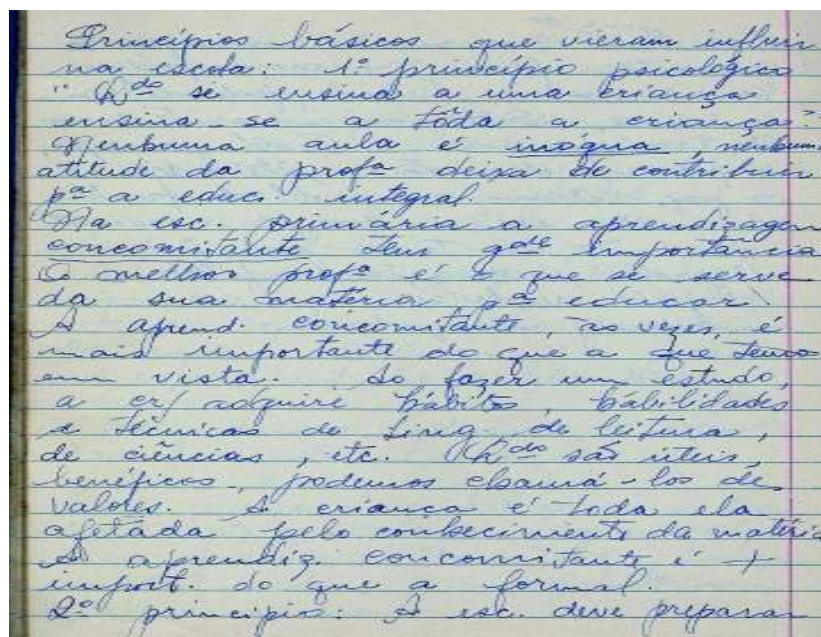 Princípios básicos que vieram influir
na escola: 1º princípio psicológico
"Qdo se ensina a uma criança
ensina-se a tôda a criança".
Nenhuma aula é inógua, nenhuma
atitude da profª deixa de contribuir
pª a educ. integral.
Na esc. primária a aprendizagem
concomitante tem gde importância
O melhor profº é o que se serve
da sua matéria pª educar
A aprend. concomitante, às vezes, é
mais importante do que a que temos
em vista. Ao fazer um estudo,
a cr/ adquire hábitos, habilidades
e técnicas de ling. de leitura,
de ciências, etc. Qdo são úteis,
benéficos, podemos chamá-los de
valores. A criança é toda ela
afetada pelo conhecimento da matéria
A aprendiz. concomitante é +
import. do que a formal.
2º princípio: A esc. deve preparar